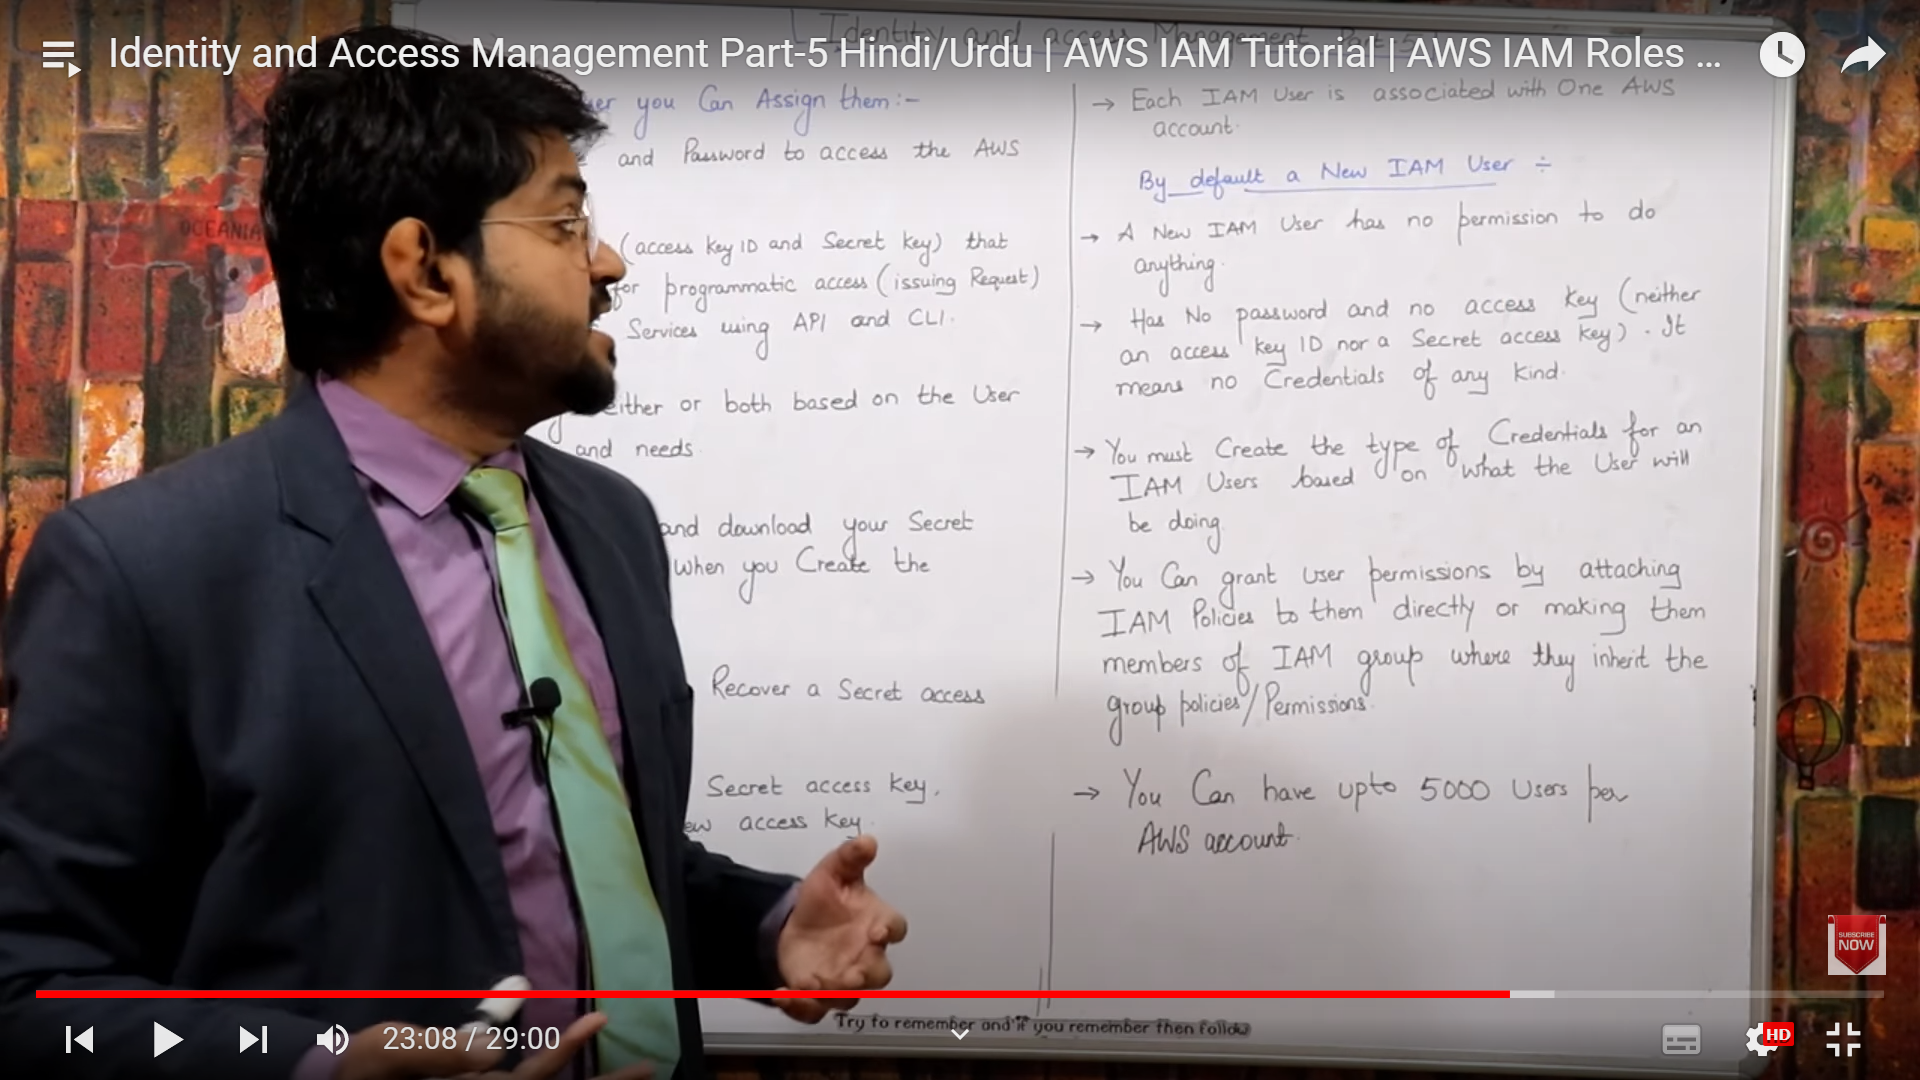 Identity and Access Management Part-5 Hindi/Urdu | AWS IAM Tutorial | AWS IAM Roles ...
Identity and access Management
you Can Assign them:-
and Password to access the AWS
(access key ID and Secret key) that
for programmatic access (issuing Request)
Services using API and CLI.
either or both based on the User
and needs.
and download your Secret
when you Create the
Recover a Secret access
Secret access key.
access key.
→ Each IAM User is associated with One AWS
account.
By default a New IAM User ÷
→ A New IAM User has no permission to do
anything.
→ Has No password and no access key (neither
an access key ID nor a Secret access key). It
means no Credentials of any kind.
→ You must Create the type of Credentials for an
IAM Users based on what the User will
be doing.
→ You Can grant user permissions by attaching
IAM Policies to them directly or making them
members of IAM group where they inherit the
group policies/Permissions.
→ You Can have upto 5000 Users per
AWS account.
OCEANIA
SUBSCRIBE
NOW
Try to remember and if you remember then follow
23:08 / 29:00
HD